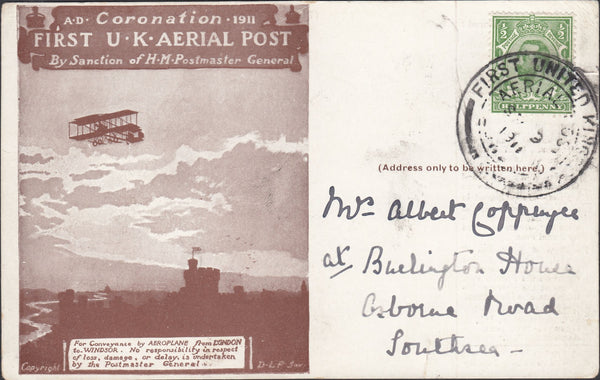 A·D· Coronation ·1911
FIRST U·K·AERIAL POST
By Sanction of H·M·Postmaster General
HALFPENNY
FIRST UNITED KING
AERIAL
(Address only to be written here.)
Mrs Albert
at Burlington House
Osborne Road
Southsea
For Conveyance by AEROPLANE from LONDON
to WINDSOR. No responsibility in respect
of loss, damage, or delay, is undertaken
by the Postmaster General.
Copyright